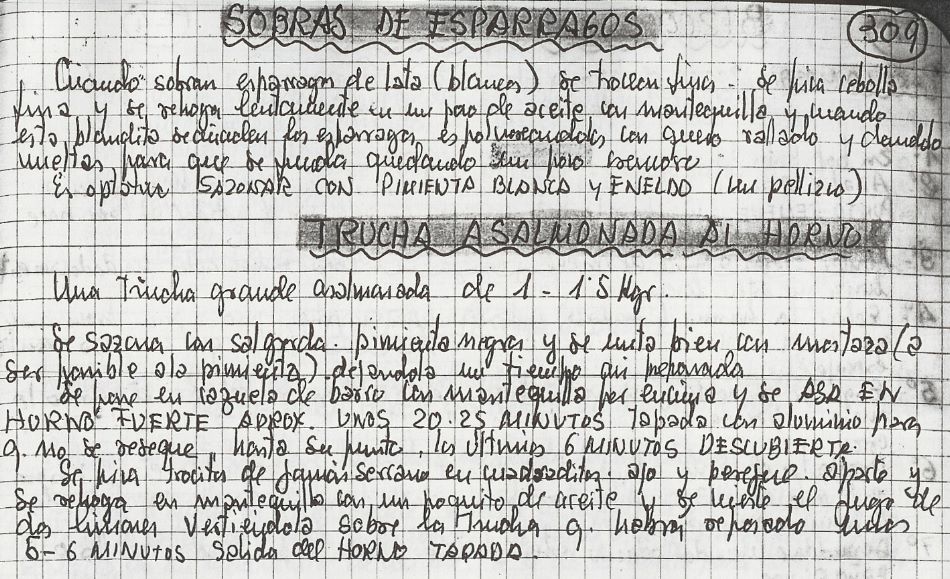 SOBRAS DE ESPARRAGOS
309
Cuando sobran esparragos de lata (blancos) se trocean finos. se pica cebolla
fina y se rehoga lentamente en un poco de aceite con mantequilla y cuando
esta blandita se añaden los esparragos, espolvoreandolos con queso rallado y dandoles
vueltas para que se funda quedando un poco cremoso
Es optativo SAZONAR CON PIMIENTA BLANCA y ENELDO (un pellizco)
TRUCHA ASALMONADA AL HORNO
Una trucha grande asalmonada de 1 - 1'5 Kgr.
Se sazona con sal gorda. pimienta negra y se unta bien con mostaza (a
ser posible a la pimienta) dejandola un tiempo asi preparada
Se pone en cazuela de barro con mantequilla por encima y se ASA EN
HORNO FUERTE APROX. UNOS 20-25 MINUTOS tapada con aluminio para
q. no se reseque, hasta su punto, los ultimos 6 MINUTOS DESCUBIERTA.
Se pica trocitos de jamón serrano en cuadraditos. ajo y perejil. aparte y
se rehoga en mantequilla con un poquito de aceite y se vierte el jugo de
dos limones vertiendola sobre la trucha q. habrá reposado unos
5-6 MINUTOS salida del HORNO TAPADA.